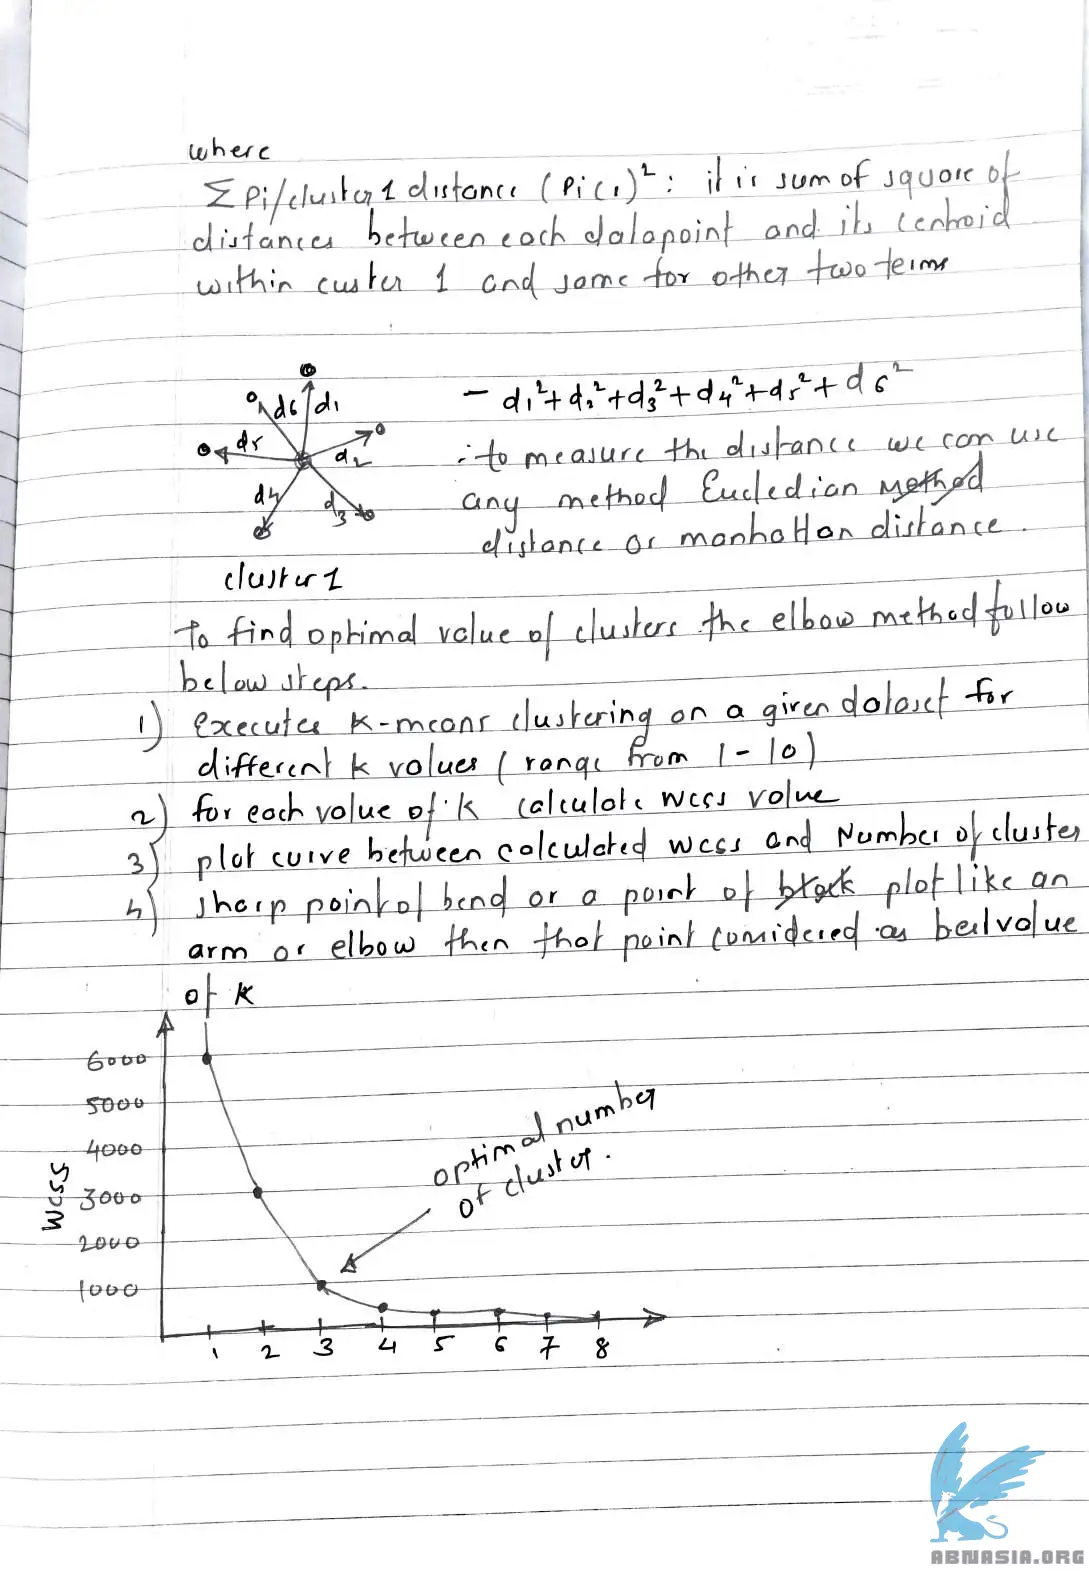 where
Σ Pi/cluster 1 distance (Pi C1)²: it is sum of square of
distances between each datapoint and its centroid
within custer 1 and same for other two terms
d6 d1
d5 d2
d4 d3
cluster 1
- d1²+d2²+d3²+d4²+d5²+d6²
: to measure the distance we can use
any method Eucledian method
distance or manhattan distance.
To find optimal value of clusters the elbow method follow
below steps.
1) executes K-means clustering on a given dataset for
different k values (range from 1-10)
2) for each value of K calculate wcss value
3) plot curve between calculated wcss and Number of cluster
4) sharp point of bend or a point of plot like an
arm or elbow then that point considered as best value
of K
6000
5000
4000
3000
2000
1000
WCSS
optimal number
of cluster.
1 2 3 4 5 6 7 8
ABNASIA.ORG